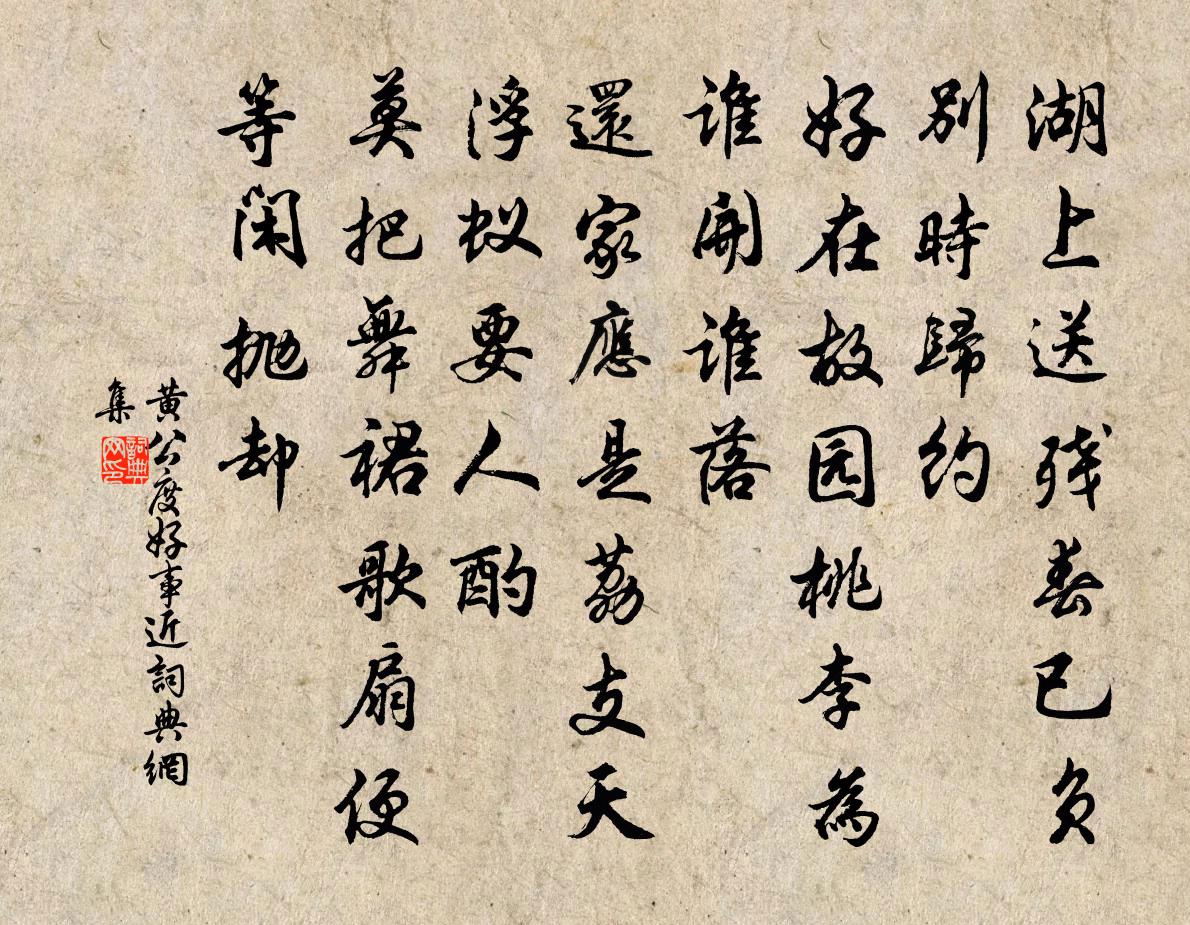 湖上送残春已负
别時歸约
好在故园桃李為
谁開谁落
還家應是荔支天
浮蚁要人酌
莫把舞裙歌扇便
等闲抛却
黄公度好事近詞典網
集
詞典
网印